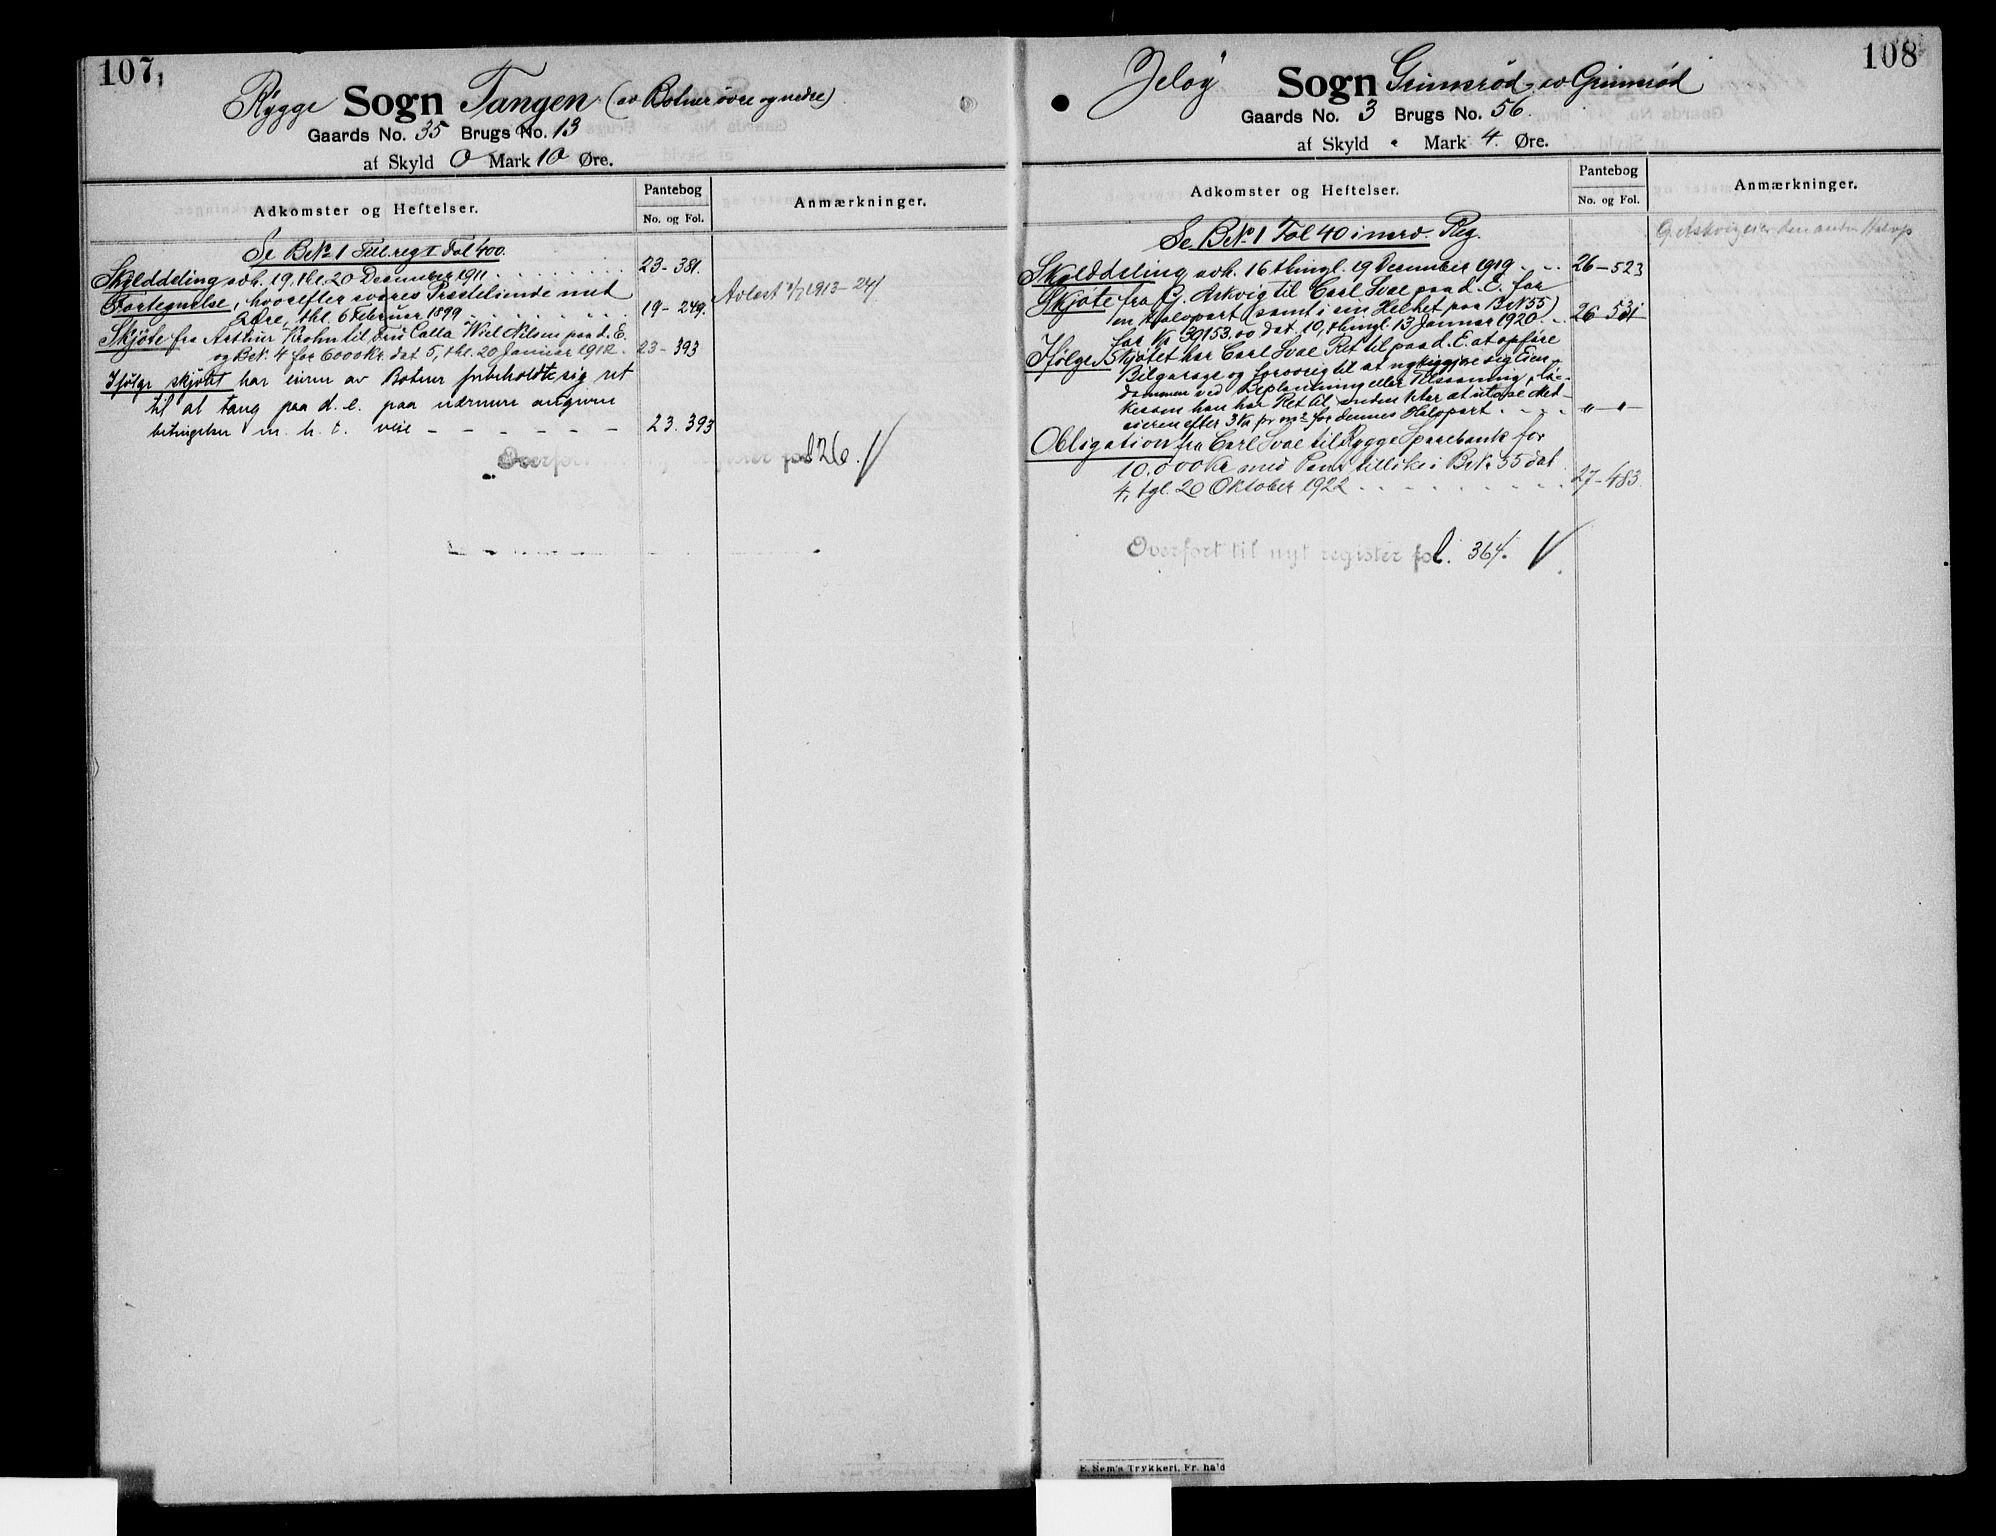 107,
Rygge Sogn Tangen (av Botner øvre og nedre)
Gaards No. 35 Brugs No. 13
af Skyld 0 Mark 10 Øre.
Adkomster og Heftelser.
Pantebog
No. og Fol.
Anmærkninger.
Se BrNo 1 Till.reg I Fol 400.
Skylddeling avh. 19, thl. 20 December 1911 23-381.
Fortegnelse, hvorefter svares Præstetiende med
2 Øre, thl. 6 Februar 1899 19-249. Avløst 1913-241
Skjøte fra Arthur Krohn til Fru Calla Wiel Nilsen paa d. E.
og BrN. 4 for 6000 Kr. dat 5, thl. 20 Januar 1912. 23-393
Ifølge skjøtet har eieren av Botner forbeholdt sig ret
til at tang paa d. e. paa nærmere angivne
betingelser m. h. t. veie 23.393
Overført fol 826.
108
Jeløy Sogn Grimsrød, av Grimsrød
Gaards No. 3 Brugs No. 56.
af Skyld " Mark 4. Øre.
Adkomster og Heftelser.
Pantebog
No. og Fol.
Anmærkninger.
Se BrNo. 1 Fol 40 i nærv. Reg.
G. Askvig eier den anden Halvp
Skylddeling avh. 16 thingl. 19 December 1919 26-523
Skjøte fra G. Askvig til Carl Svae paa d. E. for
en Halvpart (samt i sin Helhet paa BrN 55)
for Kr 39153.00 dat. 10, thingl. 13 Januar 1920 26-531
Ifølge Skjøtet har Carl Svae Ret til paa d. E. at opføre
Bilgarage og forøvrig til at nyttiggjøre sig Eien-
dommen ved Beplantning eller Tilsaaning, li-
kesom han har Ret til anden Part at utløse Med-
eieren efter 3 Kr pr m2 for dennes Halvpart "-"-
Obligation fra Carl Svae til Rygge Sparebank for
10.000 Kr med Pant tillike i BrNo 55 dat
4, tgl. 20 Oktober 1922 27-483.
Overført til nyt register fol. 364.
E. Sem's Trykkeri, Fr.hald